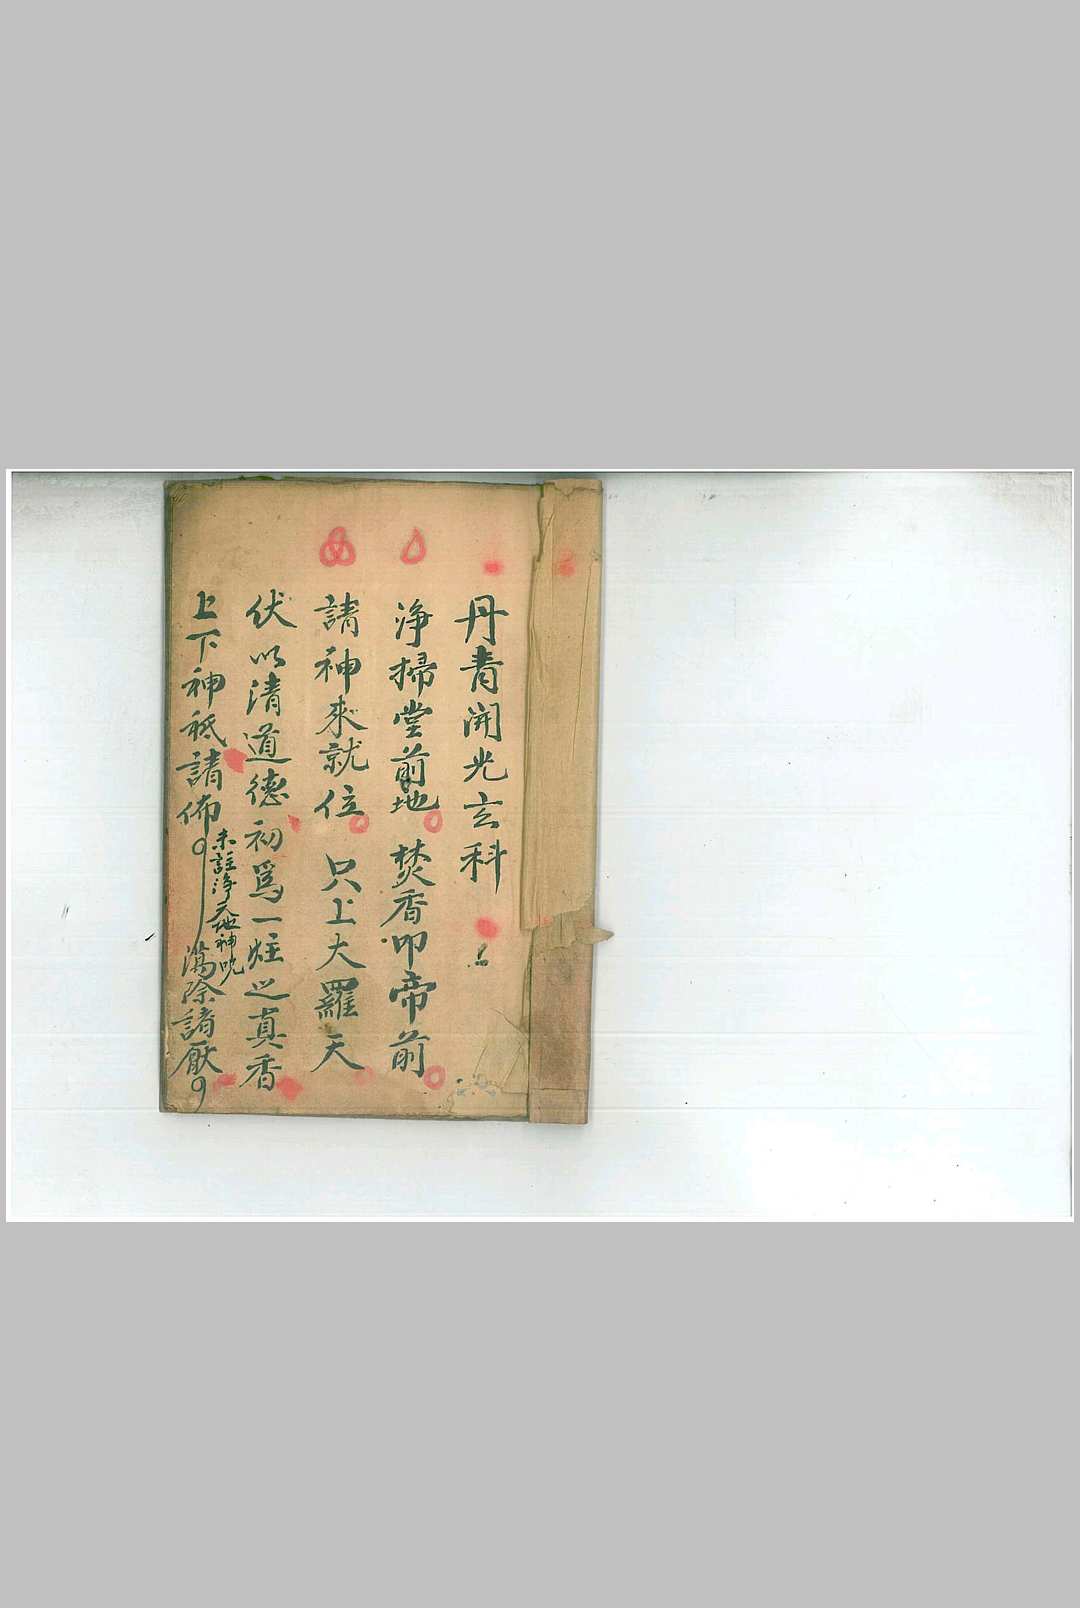 丹青開光玄科
淨掃堂前地 焚香叩帝前
請神來就位 只上大羅天
伏以清道德初爲一炷之真香
上下神祗請佈
未註淨天地神咒
蕩除諸厭